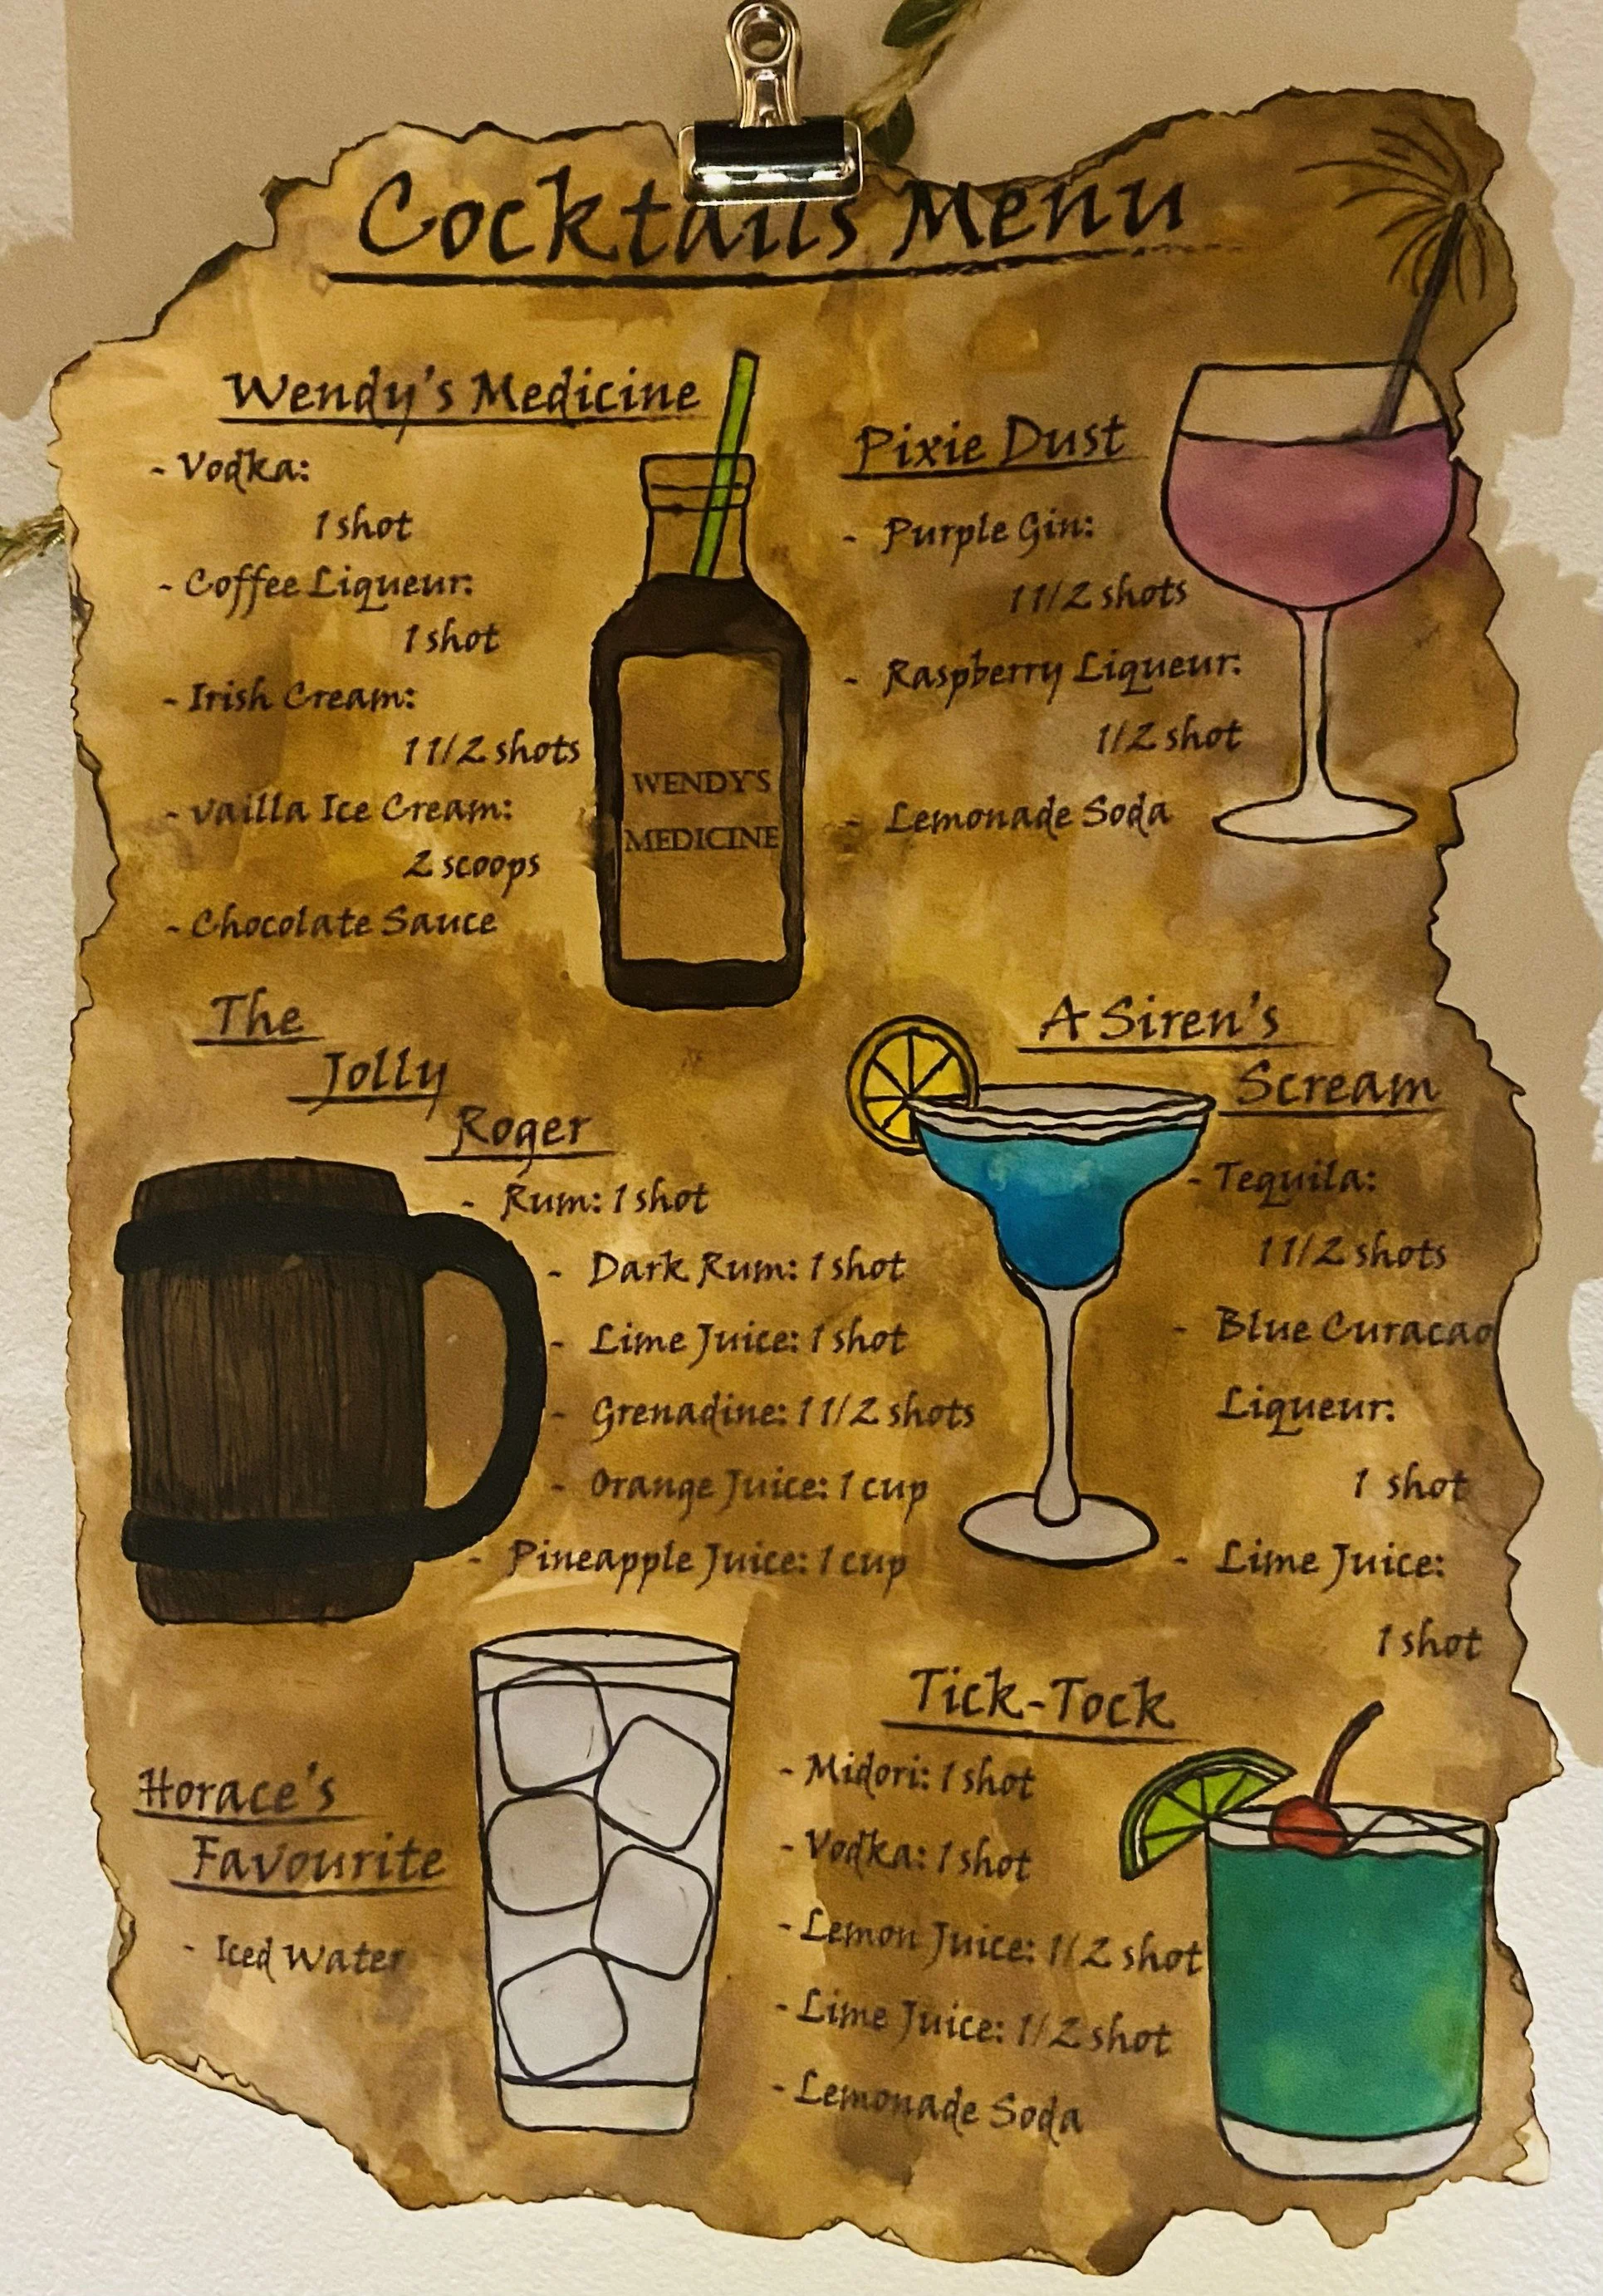 Cocktails Menu
Wendy's Medicine
- Vodka:
1 shot
- Coffee Liqueur:
1 shot
- Irish Cream:
1 1/2 shots
- Vailla Ice Cream:
2 scoops
- Chocolate Sauce
WENDY'S
MEDICINE
Pixie Dust
- Purple Gin:
1 1/2 shots
- Raspberry Liqueur:
1/2 shot
- Lemonade Soda
The
Jolly
Roger
- Rum: 1 shot
- Dark Rum: 1 shot
- Lime Juice: 1 shot
- Grenadine: 1 1/2 shots
- Orange Juice: 1 cup
- Pineapple Juice: 1 cup
A Siren's
Scream
- Tequila:
1 1/2 shots
- Blue Curacao
Liqueur:
1 shot
- Lime Juice:
1 shot
Horace's
Favourite
- Iced Water
Tick-Tock
- Midori: 1 shot
- Vodka: 1 shot
- Lemon Juice: 1/2 shot
- Lime Juice: 1/2 shot
- Lemonade Soda